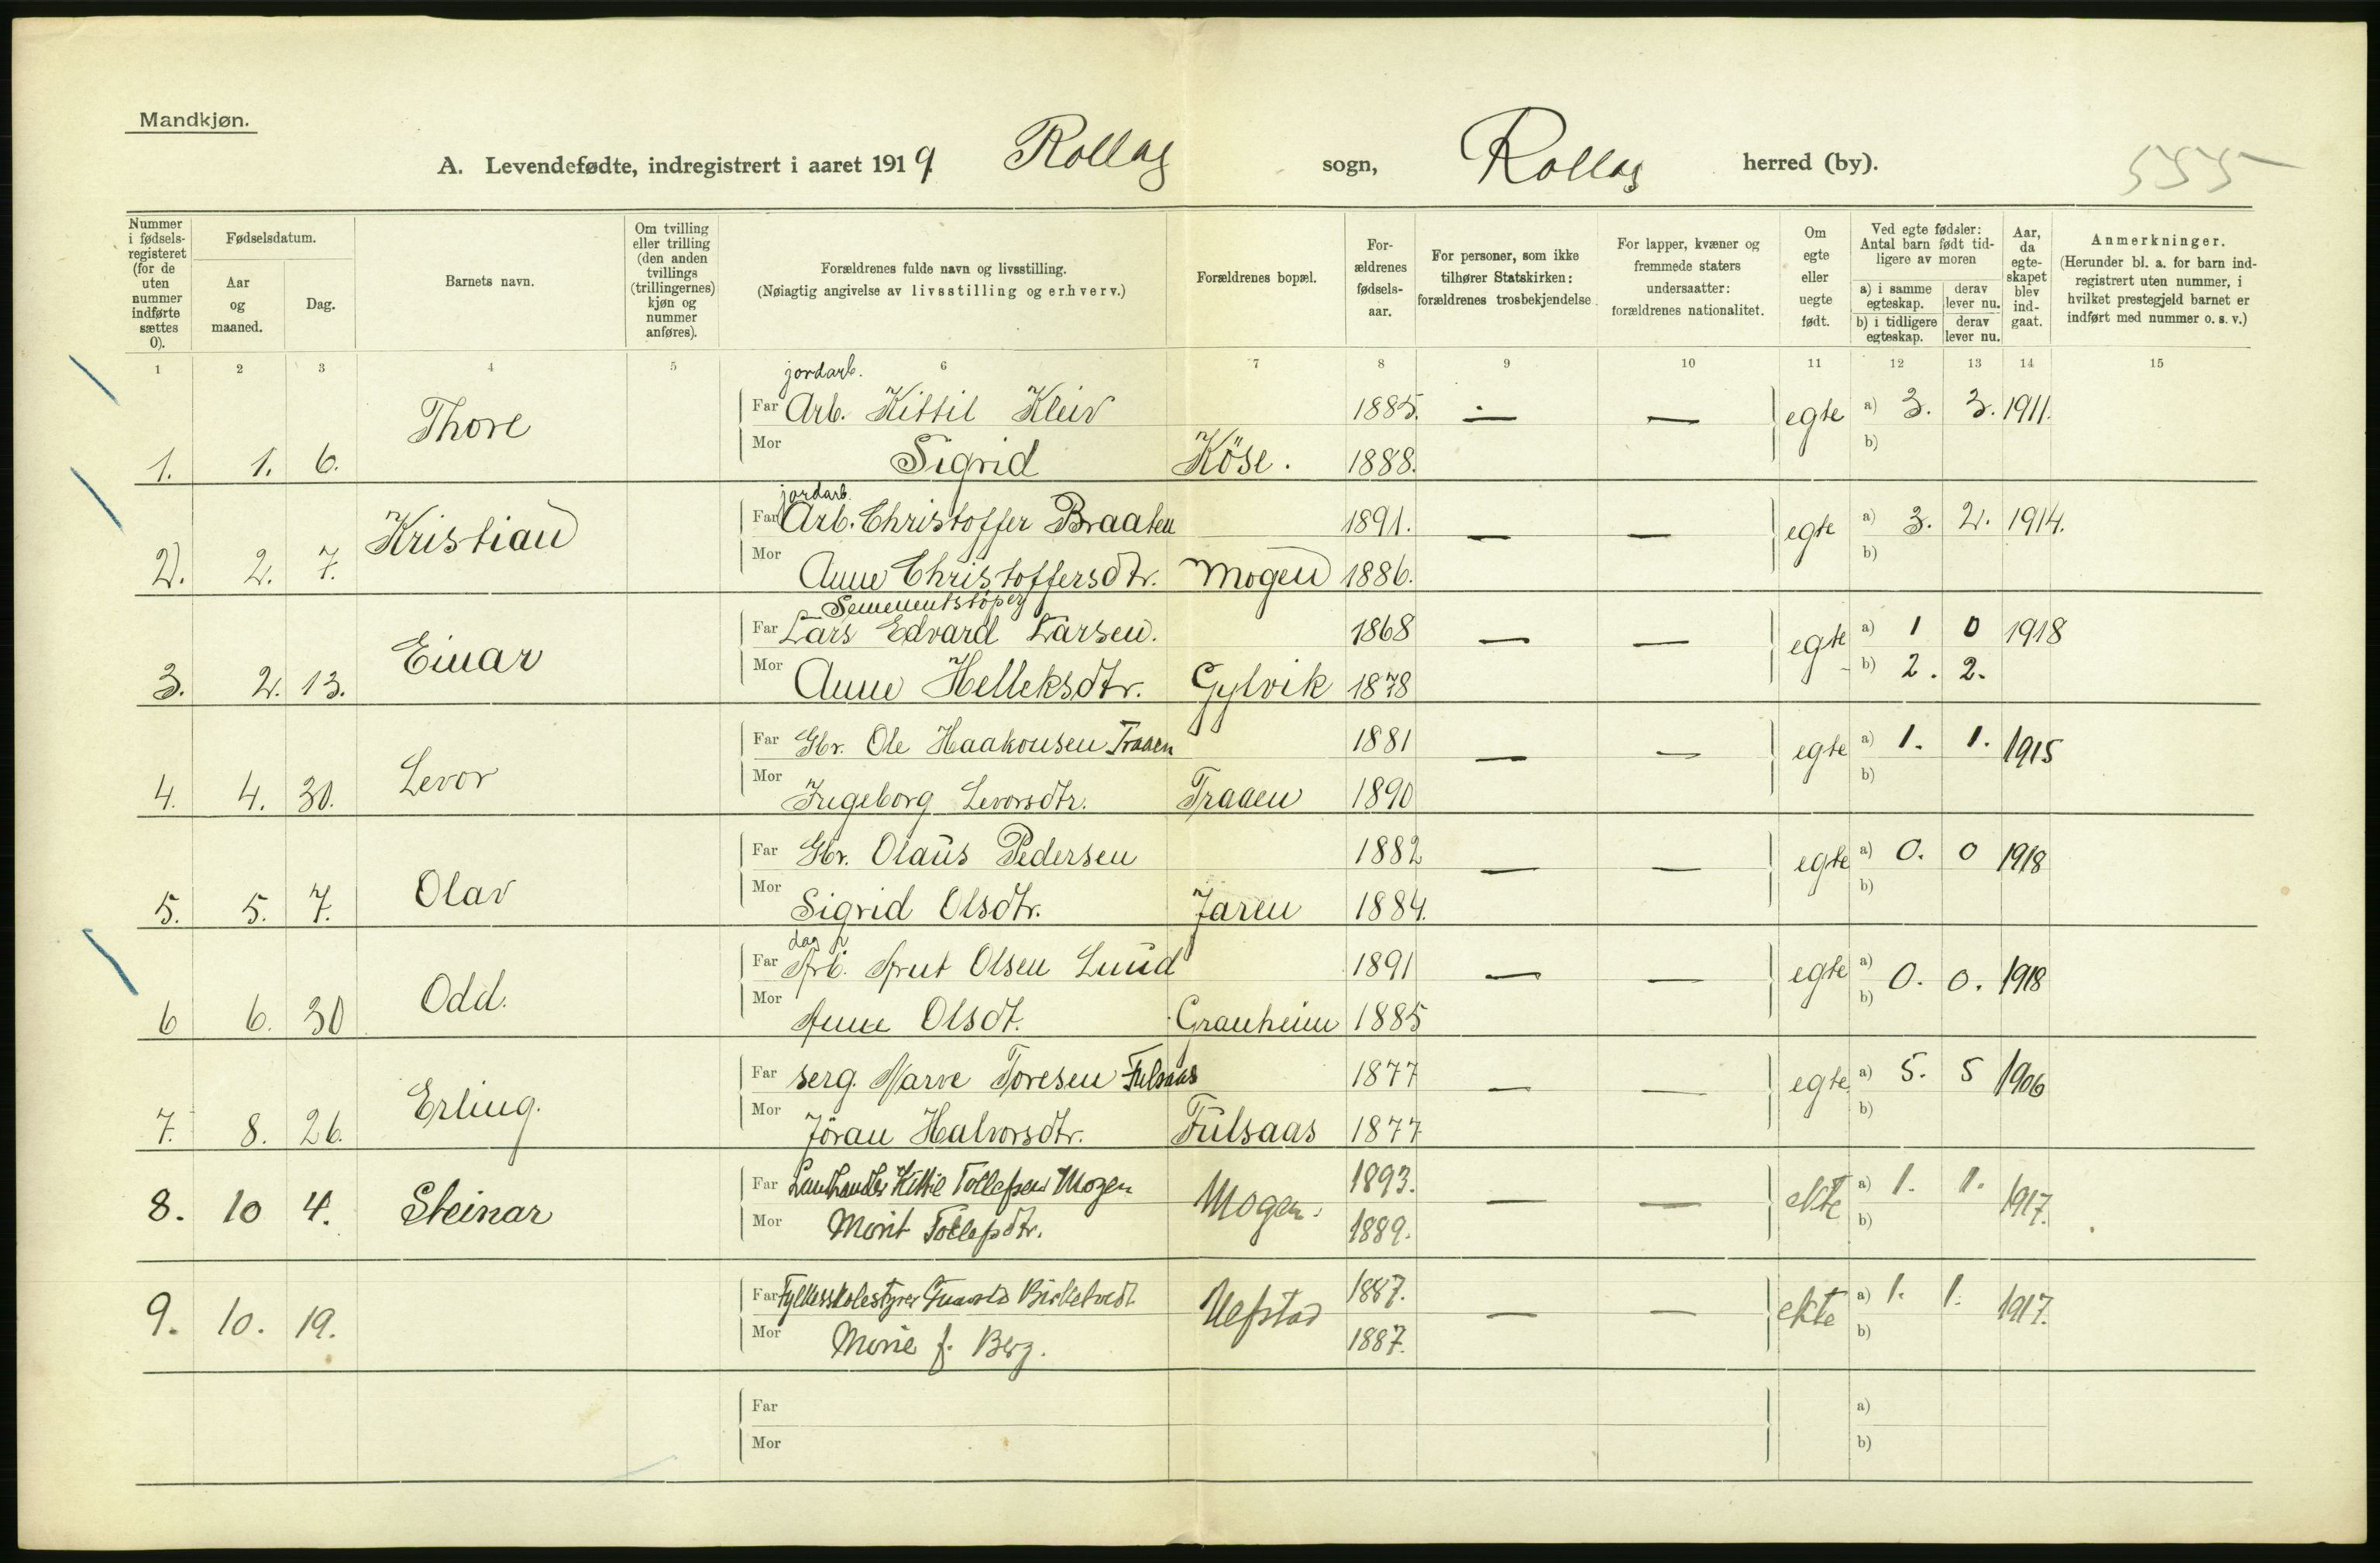 Mandkjøn.
A. Levendefødte, indregistrert i aaret 1919. Rollag sogn, Rollag herred (by). 555
Nummer i fødselsregisteret (for de uten nummer indførte sættes 0).
Fødselsdatum.
Aar og maaned.
Dag.
Barnets navn.
Om tvilling eller trilling (den anden tvillings (trillingernes) kjøn og nummer anføres).
Forældrenes fulde navn og livsstilling.
(Nøiagtig angivelse av livsstilling og erhverv.)
Forældrenes bopæl.
For-ældrenes fødsels-aar.
For personer, som ikke tilhører Statskirken: forældrenes trosbekjendelse.
For lapper, kvæner og fremmede staters undersaatter: forældrenes nationalitet.
Om egte eller uegte født.
Ved egte fødsler: Antal barn født tid-ligere av moren
a) i samme egteskap. derav lever nu.
b) i tidligere egteskap. derav lever nu.
Aar, da egte-skapet blev ind-gaat.
Anmerkninger.
(Herunder bl. a. for barn ind-registrert uten nummer, i hvilket prestegjeld barnet er indført med nummer o. s. v.)
1 2 3 4 5 6 7 8 9 10 11 12 13 14 15
jordarb.
Far Arb. Kittil Kleiv 1885. — — egte a) 3. 3. 1911.
1. 1. 6. Thore Mor Sigrid Köse. 1888. b)
jordarb.
Far Arb. Christoffer Braaten 1891. — — egte a) 3. 2. 1914.
2. 2. 7. Kristian Mor Anne Christoffersdtr. Mogen 1886. b)
Sementstöper
Far Lars Edvard Larsen. 1868 — — egte a) 1 0 1918
3. 2. 13. Einar Mor Anne Helleksdtr. Gylvik 1878 b) 2. 2.
Far Gbr. Ole Haakonsen Traaen 1881 — — egte a) 1. 1. 1915
4. 4. 30. Levor Mor Ingeborg Levorsdtr. Traaen 1890 b)
Far Gbr. Olaus Pedersen 1882 — — egte a) 0. 0 1918
5. 5. 7. Olav Mor Sigrid Olsdtr. Jaren 1884. b)
dag
Far Arb. Knut Olsen Lund 1891 — — egte a) 0. 0. 1918
6 6. 30 Odd. Mor Anne Olsdt. Granheim 1885 b)
Far serg. Narve Toresen Fulsaas 1877 — — egte a) 5. 5 1906
7. 8. 26. Erling. Mor Jöran Halvorsdtr. Fulsaas 1877 b)
Far Landhandler Kittil Tollefsen Mogen 1893. — — ekte a) 1. 1. 1917.
8. 10 4. Steinar Mor Marit Tollefsdtr. Mogen. 1889. b)
Far Fylkesskolestyrer Birketvedt 1887. — — ekte a) 1. 1. 1917.
9. 10. 19. Mor Marie f. Berg. 1887. b)
Far a)
Mor b)